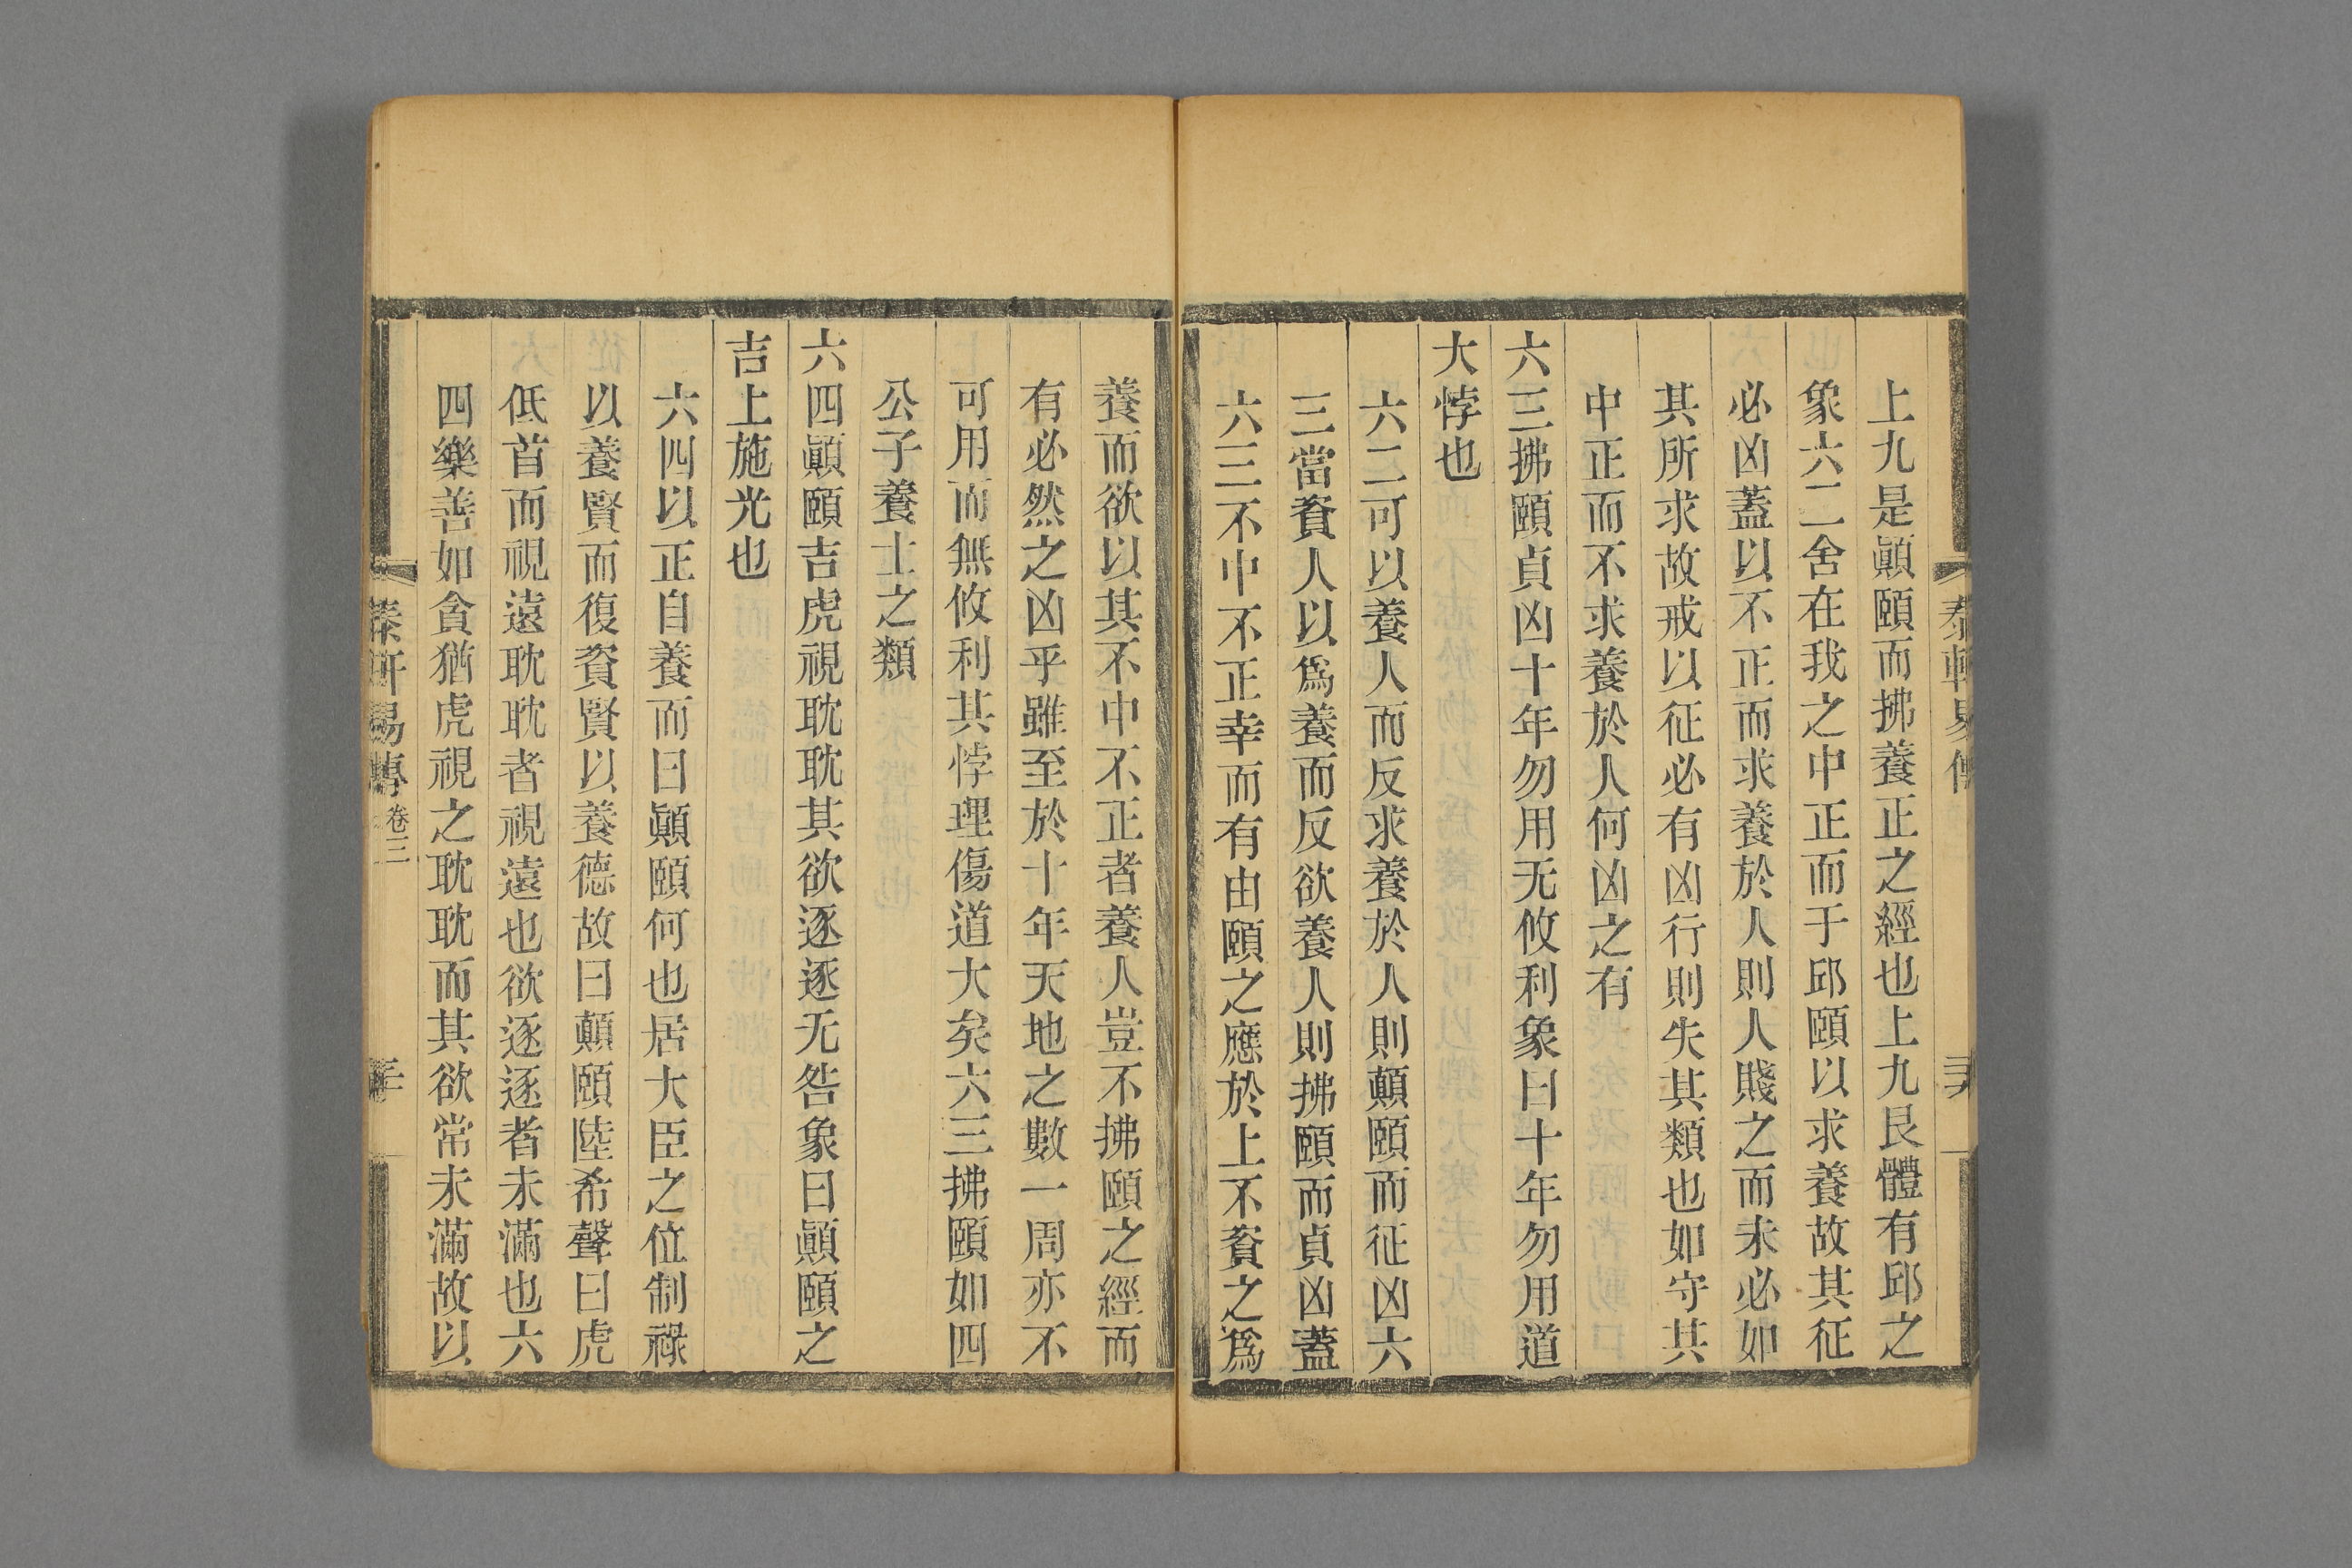 上九是顚頤而拂養正之經也上九艮體有邱之
象六二舍在我之中正而于邱頤以求養故其征
必凶蓋以不正而求養於人則人賤之而未必如
其所求故戒以征必有凶行則失其類也如守其
中正而不求養於人何凶之有
六三拂頤貞凶十年勿用无攸利象曰十年勿用道
大悖也
六二可以養人而反求養於人則顛頤而征凶六
三當資人以爲養而反欲養人則拂頤而貞凶蓋
六三不中不正幸而有由頤之應於上不資之爲
養而欲以其不中不正者養人豈不拂頤之經而
有必然之凶乎雖至於十年天地之數一周亦不
可用而無攸利其悖理傷道大矣六三拂頤如四
公子養士之類
六四顚頤吉虎視耽耽其欲逐逐无咎象曰顚頤之
吉上施光也
六四以正自養而曰顚頤何也居大臣之位制祿
以養賢而復資賢以養德故曰顛頤陸希聲曰虎
低首而視遠耽耽者視遠也欲逐逐者未滿也六
四樂善如貪猶虎視之耽耽而其欲常未滿故以
易傳 卷三